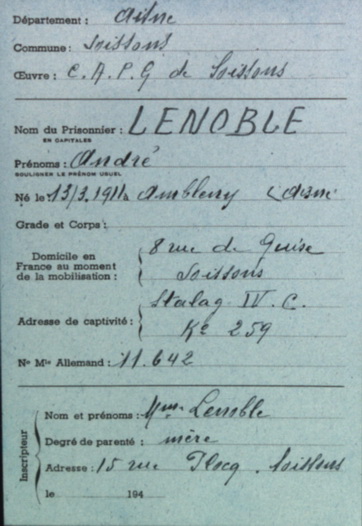 Département : Aisne
Commune : Soissons
Œuvre : C.A.P.G de Soissons
Nom du Prisonnier : LENOBLE
EN CAPITALES
Prénoms : André
SOULIGNER LE PRÉNOM USUEL
Né le 13/3.1911 à Ambleny (Aisne
Grade et Corps :
Domicile en France au moment de la mobilisation : 8 rue de Guise
Soissons
Adresse de captivité : Stalag IV.C.
Kº 259
Nº Mle Allemand : 11.642
Inscripteur
Nom et prénoms : Mme Lenoble
Degré de parenté : mère
Adresse : 15 rue Soissons
le 194